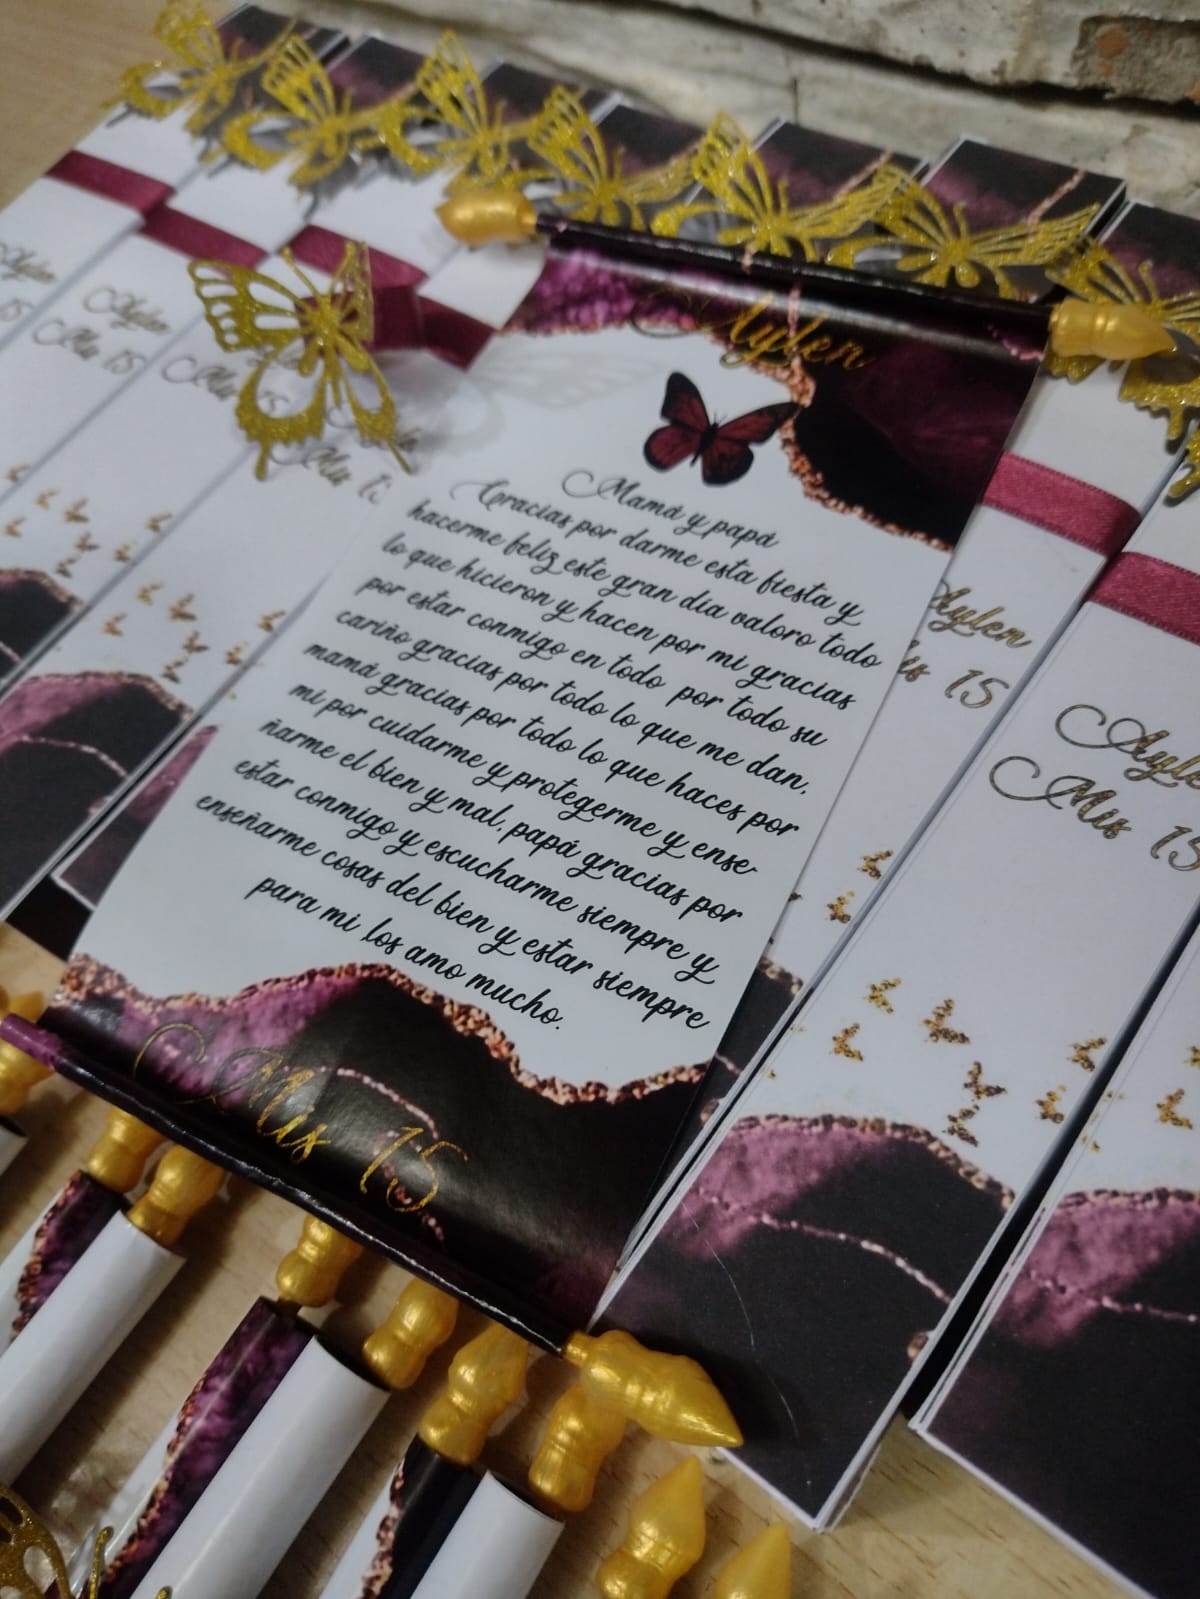 Aylen
Mamá y papá
Gracias por darme esta fiesta y
hacerme feliz este gran dia valoro todo
lo que hicieron y hacen por mi gracias
por estar conmigo en todo por todo su
cariño gracias por todo lo que me dan,
mamá gracias por todo lo que haces por
mi por cuidarme y protegerme y ense-
ñarme el bien y mal, papá gracias por
estar conmigo y escucharme siempre y
enseñarme cosas del bien y estar siempre
para mi los amo mucho.
Mis 15
Aylen
15
Aylen
Mis 15
Mis 15
Mis
Aylen
15
Mis 15